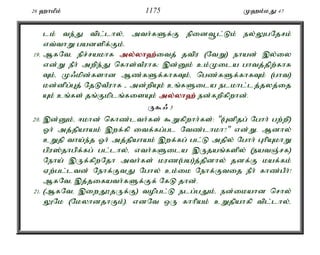 26 ஹாமீம் 1175 முஹம்மது 47
டம் வந்து விட்டால், அவர்களுக்கு நினைவூட்டும் நல்லுபதேசம்
எவ்வாறு பயனளிக்கும்.
19. ஆகவே, நிச்சயமாக அல்லாஹ்வைத் தவிர (வேறு) நாயன் இல்லை
என்று நீர் அறிந்து கொள்வீராக; இன்னும் உம்முடைய பாவத்திற்காக
வும், முஃமின்களான ஆண்களுக்காகவும், பெண்களுக்காகவும் (பாவ)
மன்னிப்புத் தேடுவீராக - அன்றியும் உங்களுடைய நடமாட்டத்தலத்தை
யும் உங்கள் தங்குமிடங்களையும் அல்லாஹ் நன்கறிகிறான்.
ருகூஃ 3
20. இன்னும், ஈமான் கொண்டவர்கள் கூறுகிறார்கள்: "(புனிதப் போர் பற்றி)
ஓர் அத்தியாயம் இறக்கி வைக்கப்பட வேண்டாமா?" என்று. ஆனால்
உறுதி வாய்ந்த ஓர் அத்தியாயம் இறக்கப் பட்டு அதில் போர் புரியுமாறு
பிரஸ்தாபிக்கப் பட்டால், எவர்களுடைய இருதயங்களில் (நயவஞ்சக)
நோய் இருக்கிறதோ அவர்கள் மரண(பய)த்தினால் தனக்கு மயக்கம்
ஏற்பட்டவன் நோக்குவது போல் உம்மை நோக்குவதை நீர் காண்பீர்!
ஆகவே, இத்தகையவர்களுக்குக் கேடு தான்.
21. (ஆகவே, இறைதூதருக்கு) வழிபட்டு நடப்பதும், நன்மையான சொல்
லுமே (மேலானதாகும்). எனவே ஒரு காரியம் உறுதியாகி விட்டால்,